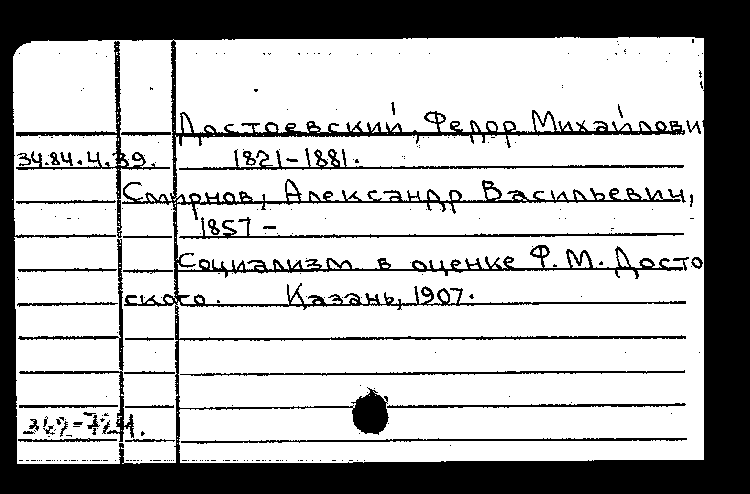 Достоевский, Федор Михайлови
34.84.4.39. 1821-1881.
Смирнов, Александр Васильевич,
1857 -
Социализм в оценке Ф. М. Досто
ского. Казань, 1907.